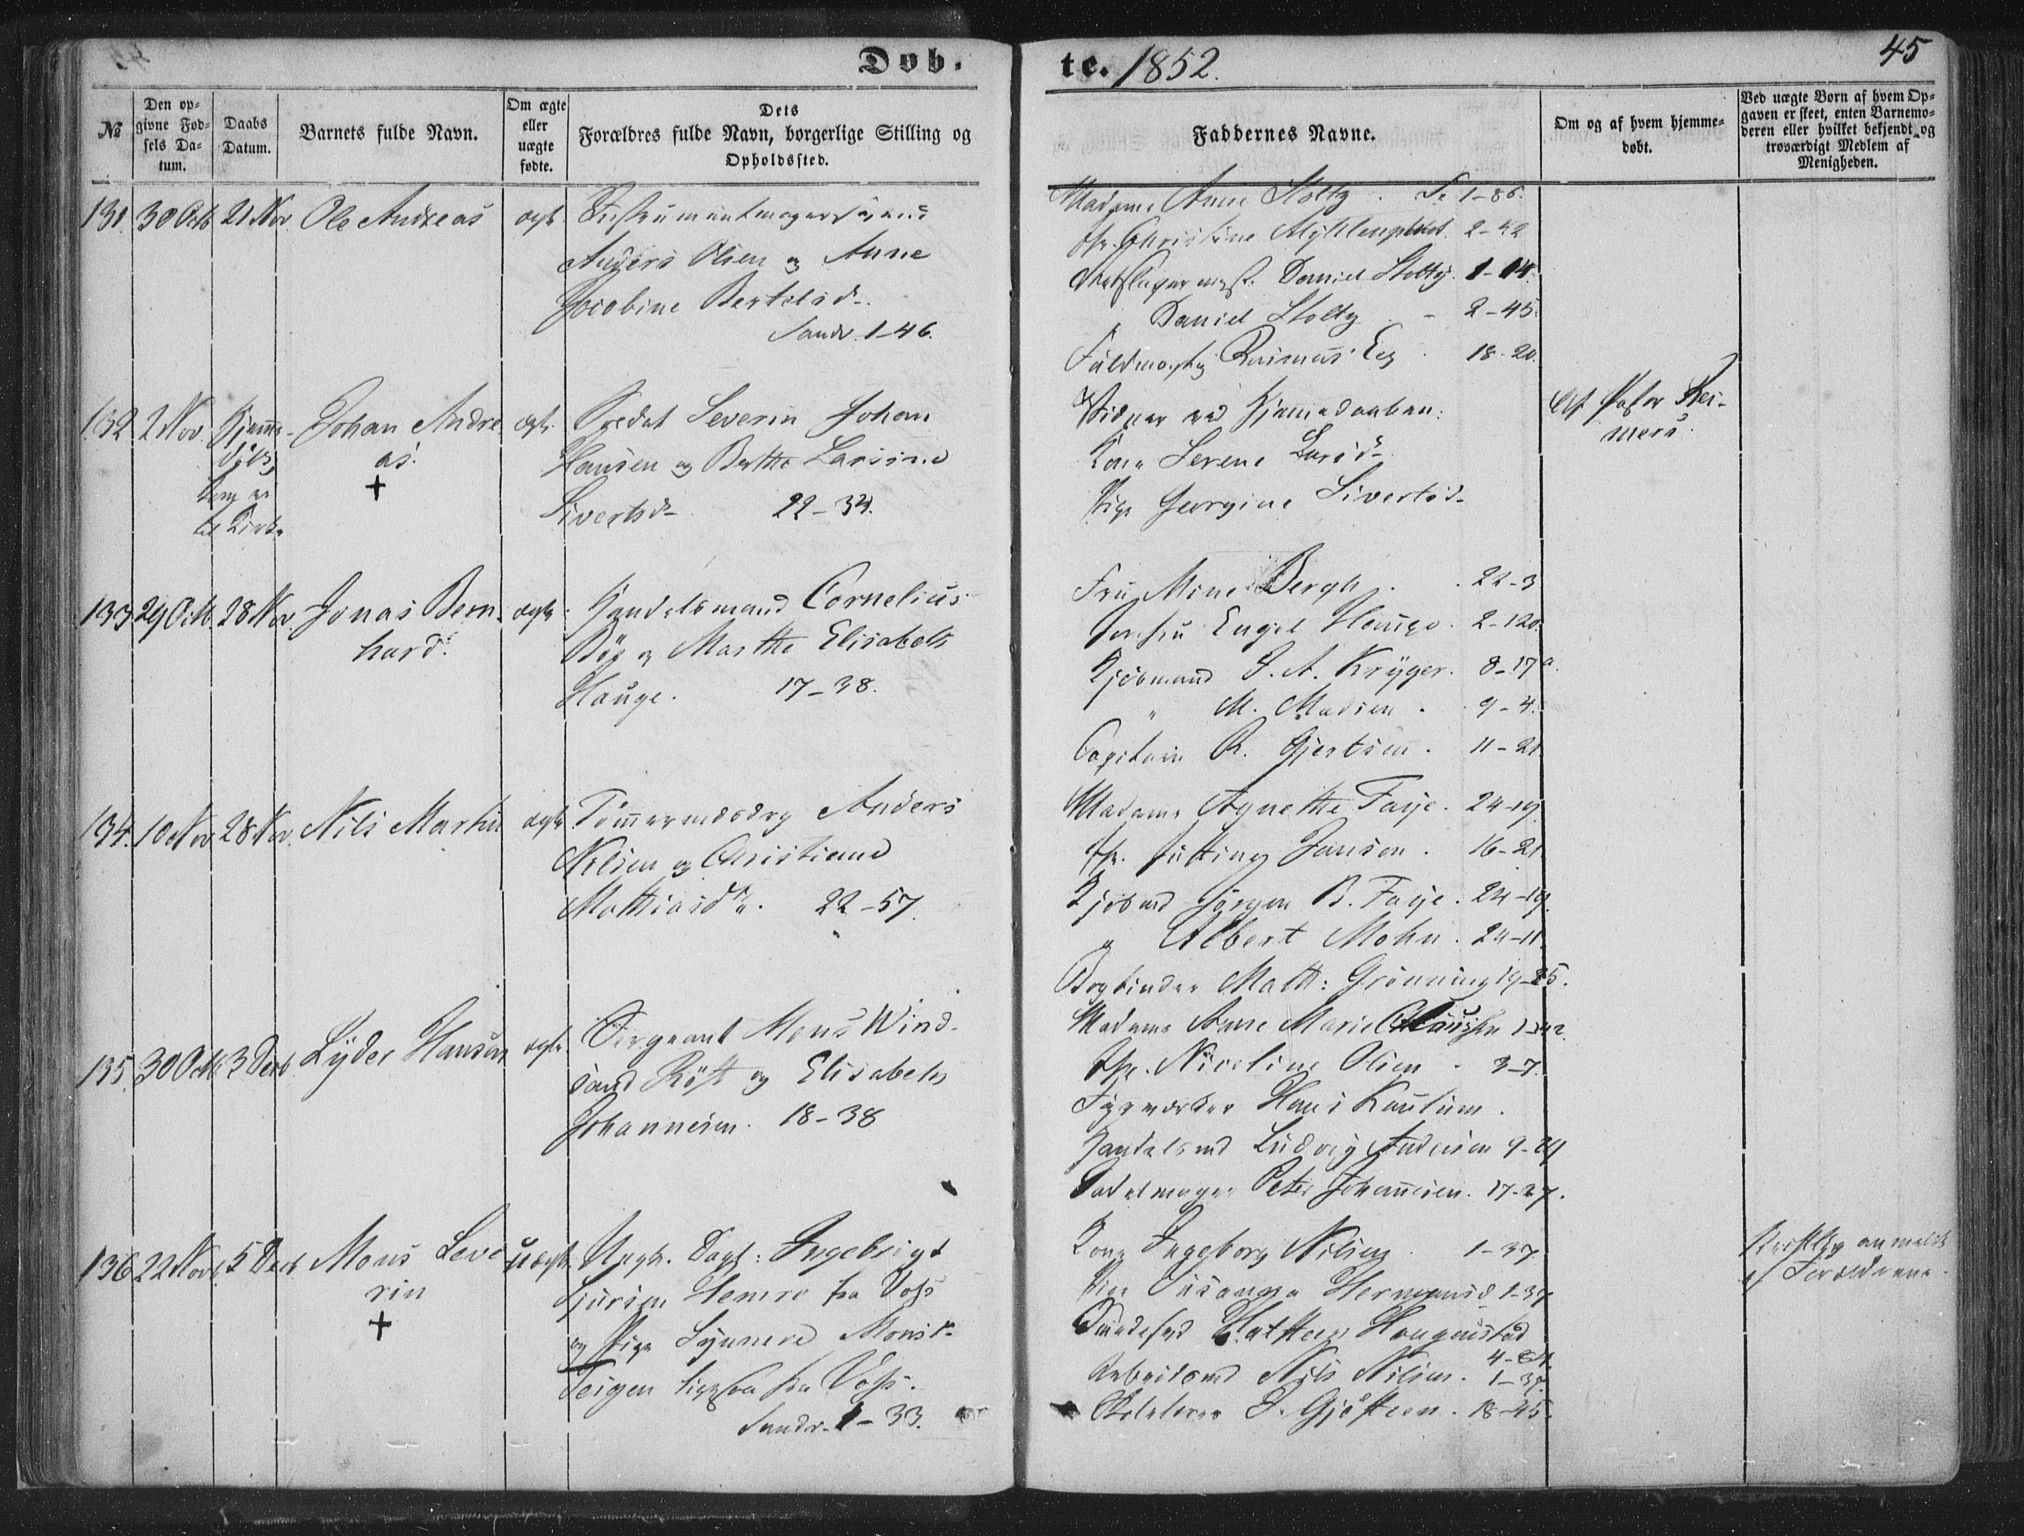 Døb.
te. 1852.
45
No
Den op-
givne Fød-
sels Da-
tum.
Daabs
Datum.
Barnets fulde Navn.
Om ægte
eller
uægte
fødte.
Dets
Forældres fulde Navn, borgerlige Stilling og
Opholdssted.
Faddernes Navne.
Om og af hvem hjemme-
døbt.
Ved uægte Børn af hvem Op-
gaven er skeet, enten Barnemo-
deren eller hvilket bekjendt og
troværdigt Medlem af
Menigheden.
131. 30 Octb 21 Nov Ole Andreas ægte Instrumentmagersvend
Anders Olsen og Anne
Jacobine Bertelsd.
Sandv. 1-46.
Madame Anne Stoltz. 1-86.
Christine 2-42
Daniel Stoltz. 1-14.
Daniel Stoltz - 2-45.
Rasmus Eeg 18-20.
132 2 Nov. Hjemme-
døbt,
til Kirke
Johan Andre
as.
+
ægte. Severin Johan
Hansen og Berthe Larsine
Sivertsd. 22-34.
Vidner ved Hjemmedaaben:
Kone Serene Larsd.
Pige Georgine Sivertsd.
Af Pastor Rei-
mers.
133 29 Octb. 28 Nov. Jonas Bern-
hard.
ægte Handelsmand Cornelius
Bøe og Marthe Elisabeth
Hauge. 17-38.
Fru Mine Bergh. 22-3
Jomfru Engel Hauge. 2-120.
Kjøbmand J. A. Krÿger. 8-17a.
" M. Madsen. 9-4.
Capitain R. Gjertsen. 11-21
134. 10 Nov 28 Nov. Nils Martin ægte Tømmermdsdrg Anders
Nilsen og Christiane
Mathiasdr. 22-57.
Madame Agnethe Faye. 24-19.
Jfr. Jansen. 16-21.
Kjøbmd Jørgen B. Faye. 24-19.
" Albert Mohn. 24-11.
Bogbinder Math: Grønning 19-25.
135. 30 Octb 3 Decb. Lÿder Hansen ægte. Sergeant Mons Wind-
sand Røst og Elisabeth
Johannesen. 18-38
Madame Anne Marie Clausen
Jfr. Nicoline Olsen. 3-7.
Fyrværker Hans Kaulum.
Handelsmd Ludvig Andersen 9-24
Sadelmager Peter Johannesen. 17-27.
136 22 Novb 5 Decb Mons Seve
rin
+
uægte. Ungk. Ingebrigt
Sjursen Hemre fra Voss
og Pige Synneve Monsdr.
Teigen ligesaa fra Voss.
Sandv. 1-33.
Kone Ingeborg Nilsen 1-37.
Pige Susanna Hermansd. 1-37
Halsteen Haugenstad
4-84.
Arbeidsmd Nils Nilsen. 1-37.
Skolelærer J. Gjøsteen. 18-45.
Skriftlig anmeldt
af Forældrene.